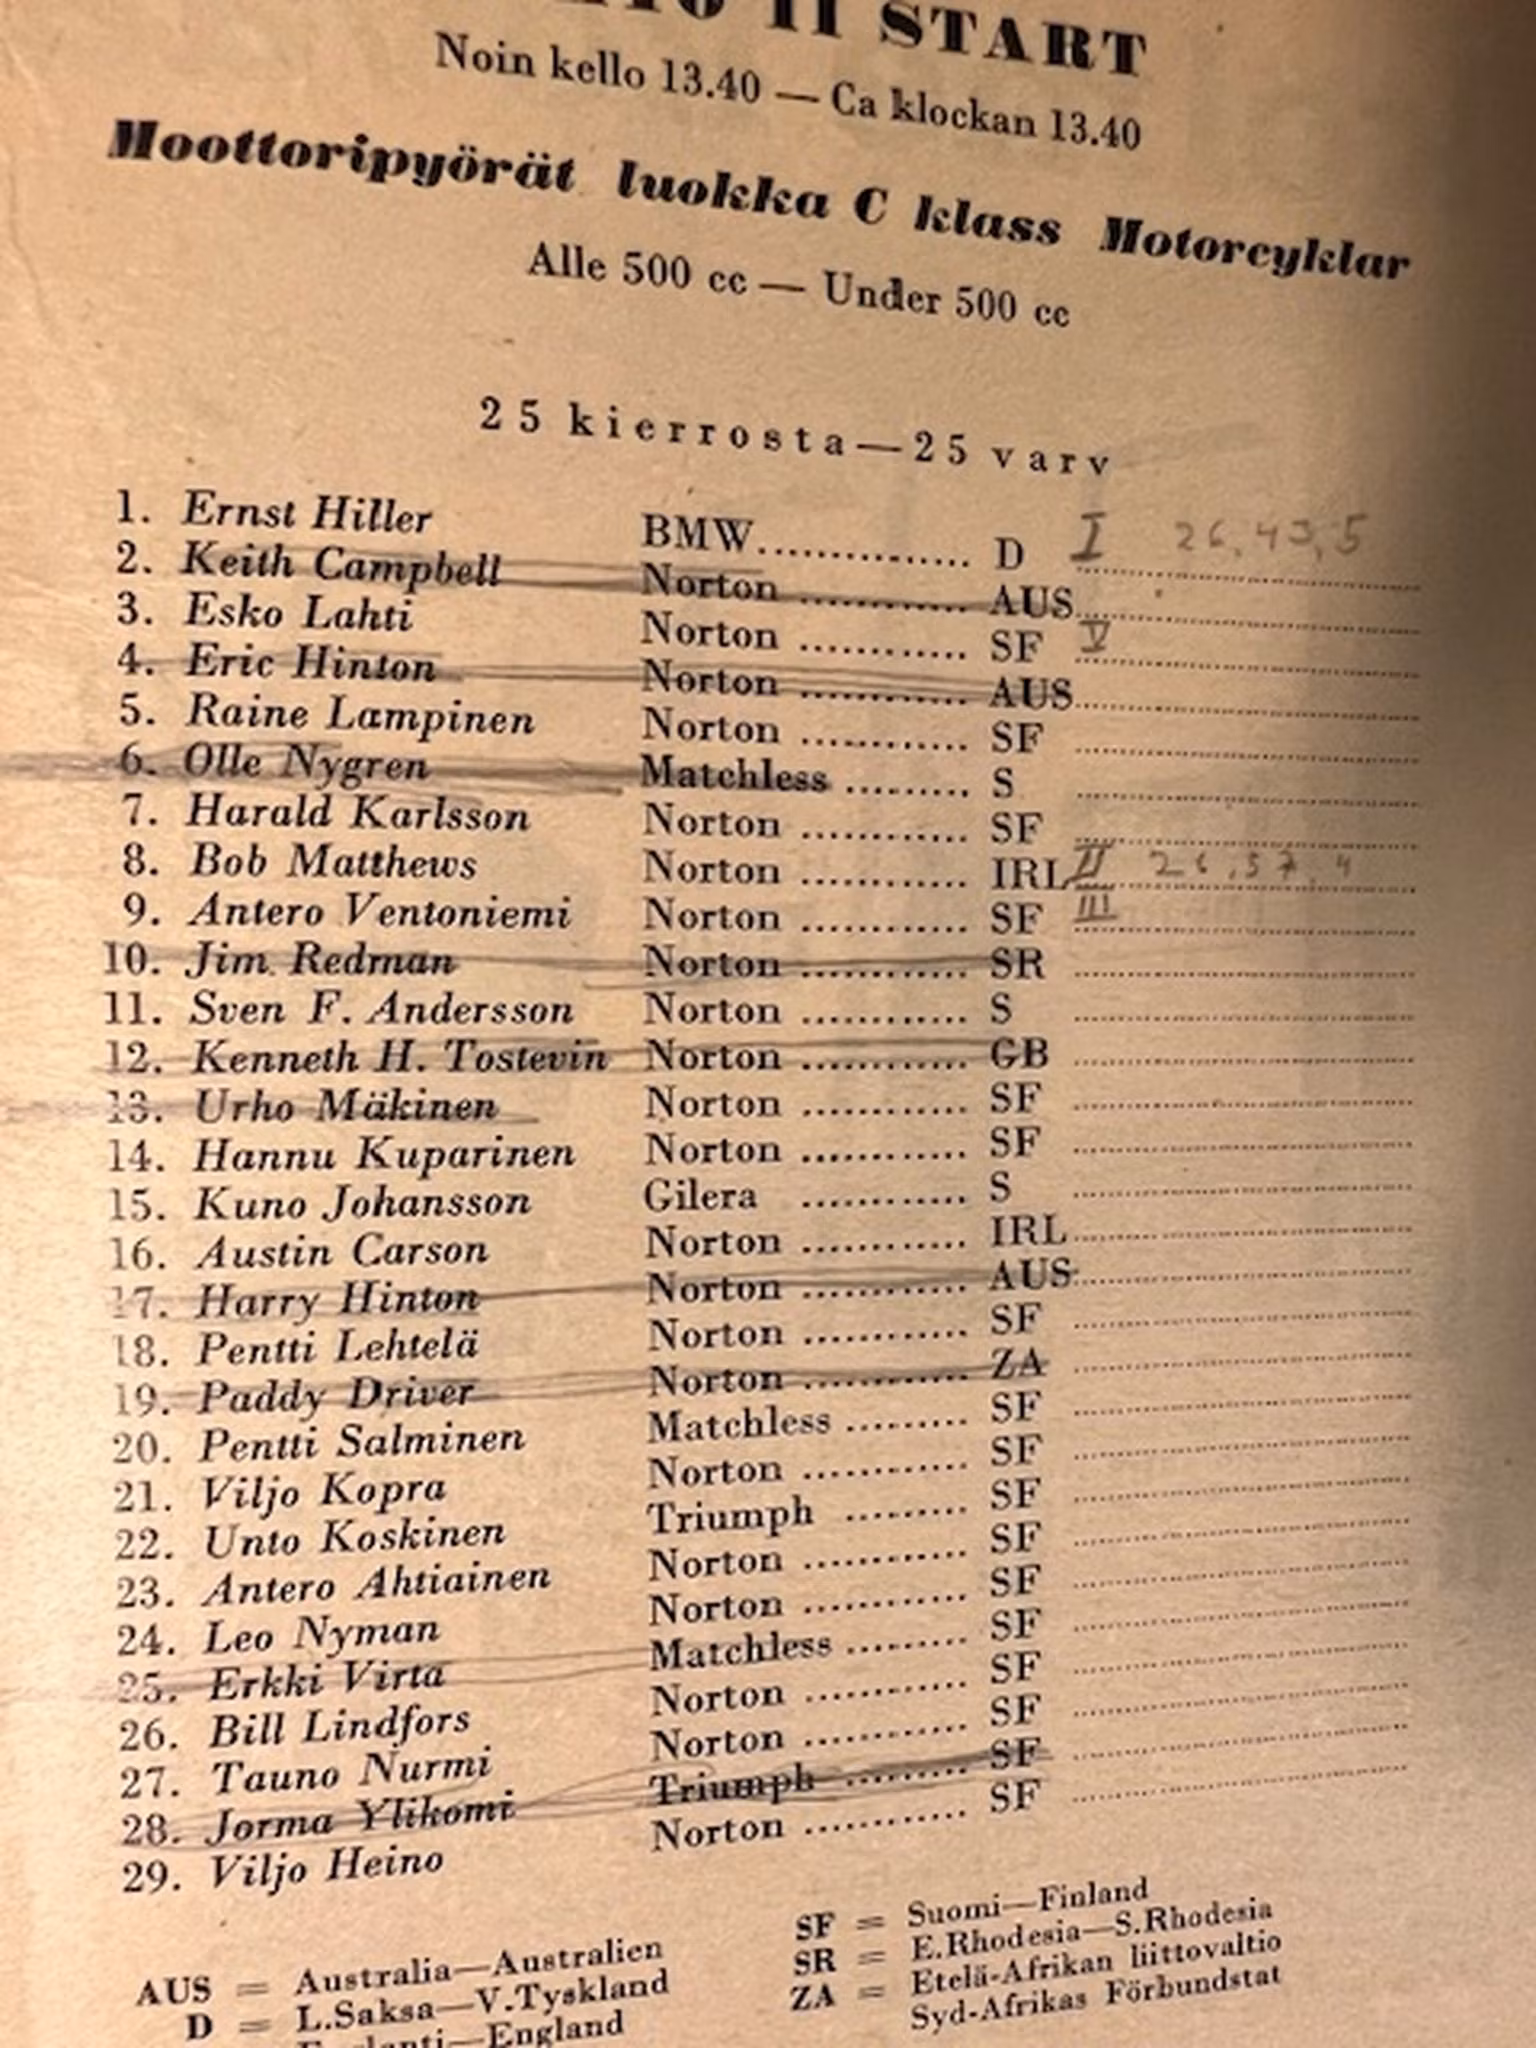 II START
Noin kello 13.40 — Ca klockan 13.40
Moottoripyörät luokka C klass Motorcyklar
Alle 500 cc — Under 500 cc
25 kierrosta—25 varv
1. Ernst Hiller BMW............... D I 26,43,5
2. Keith Campbell Norton ............ AUS
3. Esko Lahti Norton ............ SF V
4. Eric Hinton Norton ............ AUS
5. Raine Lampinen Norton ............ SF
6. Olle Nygren Matchless ......... S
7. Harald Karlsson Norton ............ SF
8. Bob Matthews Norton ............ IRL II 26,57,4
9. Antero Ventoniemi Norton ............ SF III
10. Jim Redman Norton ............ SR
11. Sven F. Andersson Norton ............ S
12. Kenneth H. Tostevin Norton ............ GB
13. Urho Mäkinen Norton ............ SF
14. Hannu Kuparinen Norton ............ SF
15. Kuno Johansson Gilera ............ S
16. Austin Carson Norton ............ IRL
17. Harry Hinton Norton ............ AUS
18. Pentti Lehtelä Norton ............ SF
19. Paddy Driver Norton ............ ZA
20. Pentti Salminen Matchless ......... SF
21. Viljo Kopra Norton ............ SF
22. Unto Koskinen Triumph ......... SF
23. Antero Ahtiainen Norton ............ SF
24. Leo Nyman Norton ............ SF
25. Erkki Virta Matchless ......... SF
26. Bill Lindfors Norton ............ SF
27. Tauno Nurmi Norton ............ SF
28. Jorma Ylikomi Triumph ......... SF
29. Viljo Heino Norton ............ SF
AUS = Australia—Australien
D = L.Saksa—V.Tyskland
England
SF = Suomi—Finland
SR = E.Rhodesia—S.Rhodesia
ZA = Etelä-Afrikan liittovaltio
Syd-Afrikas Förbundstat